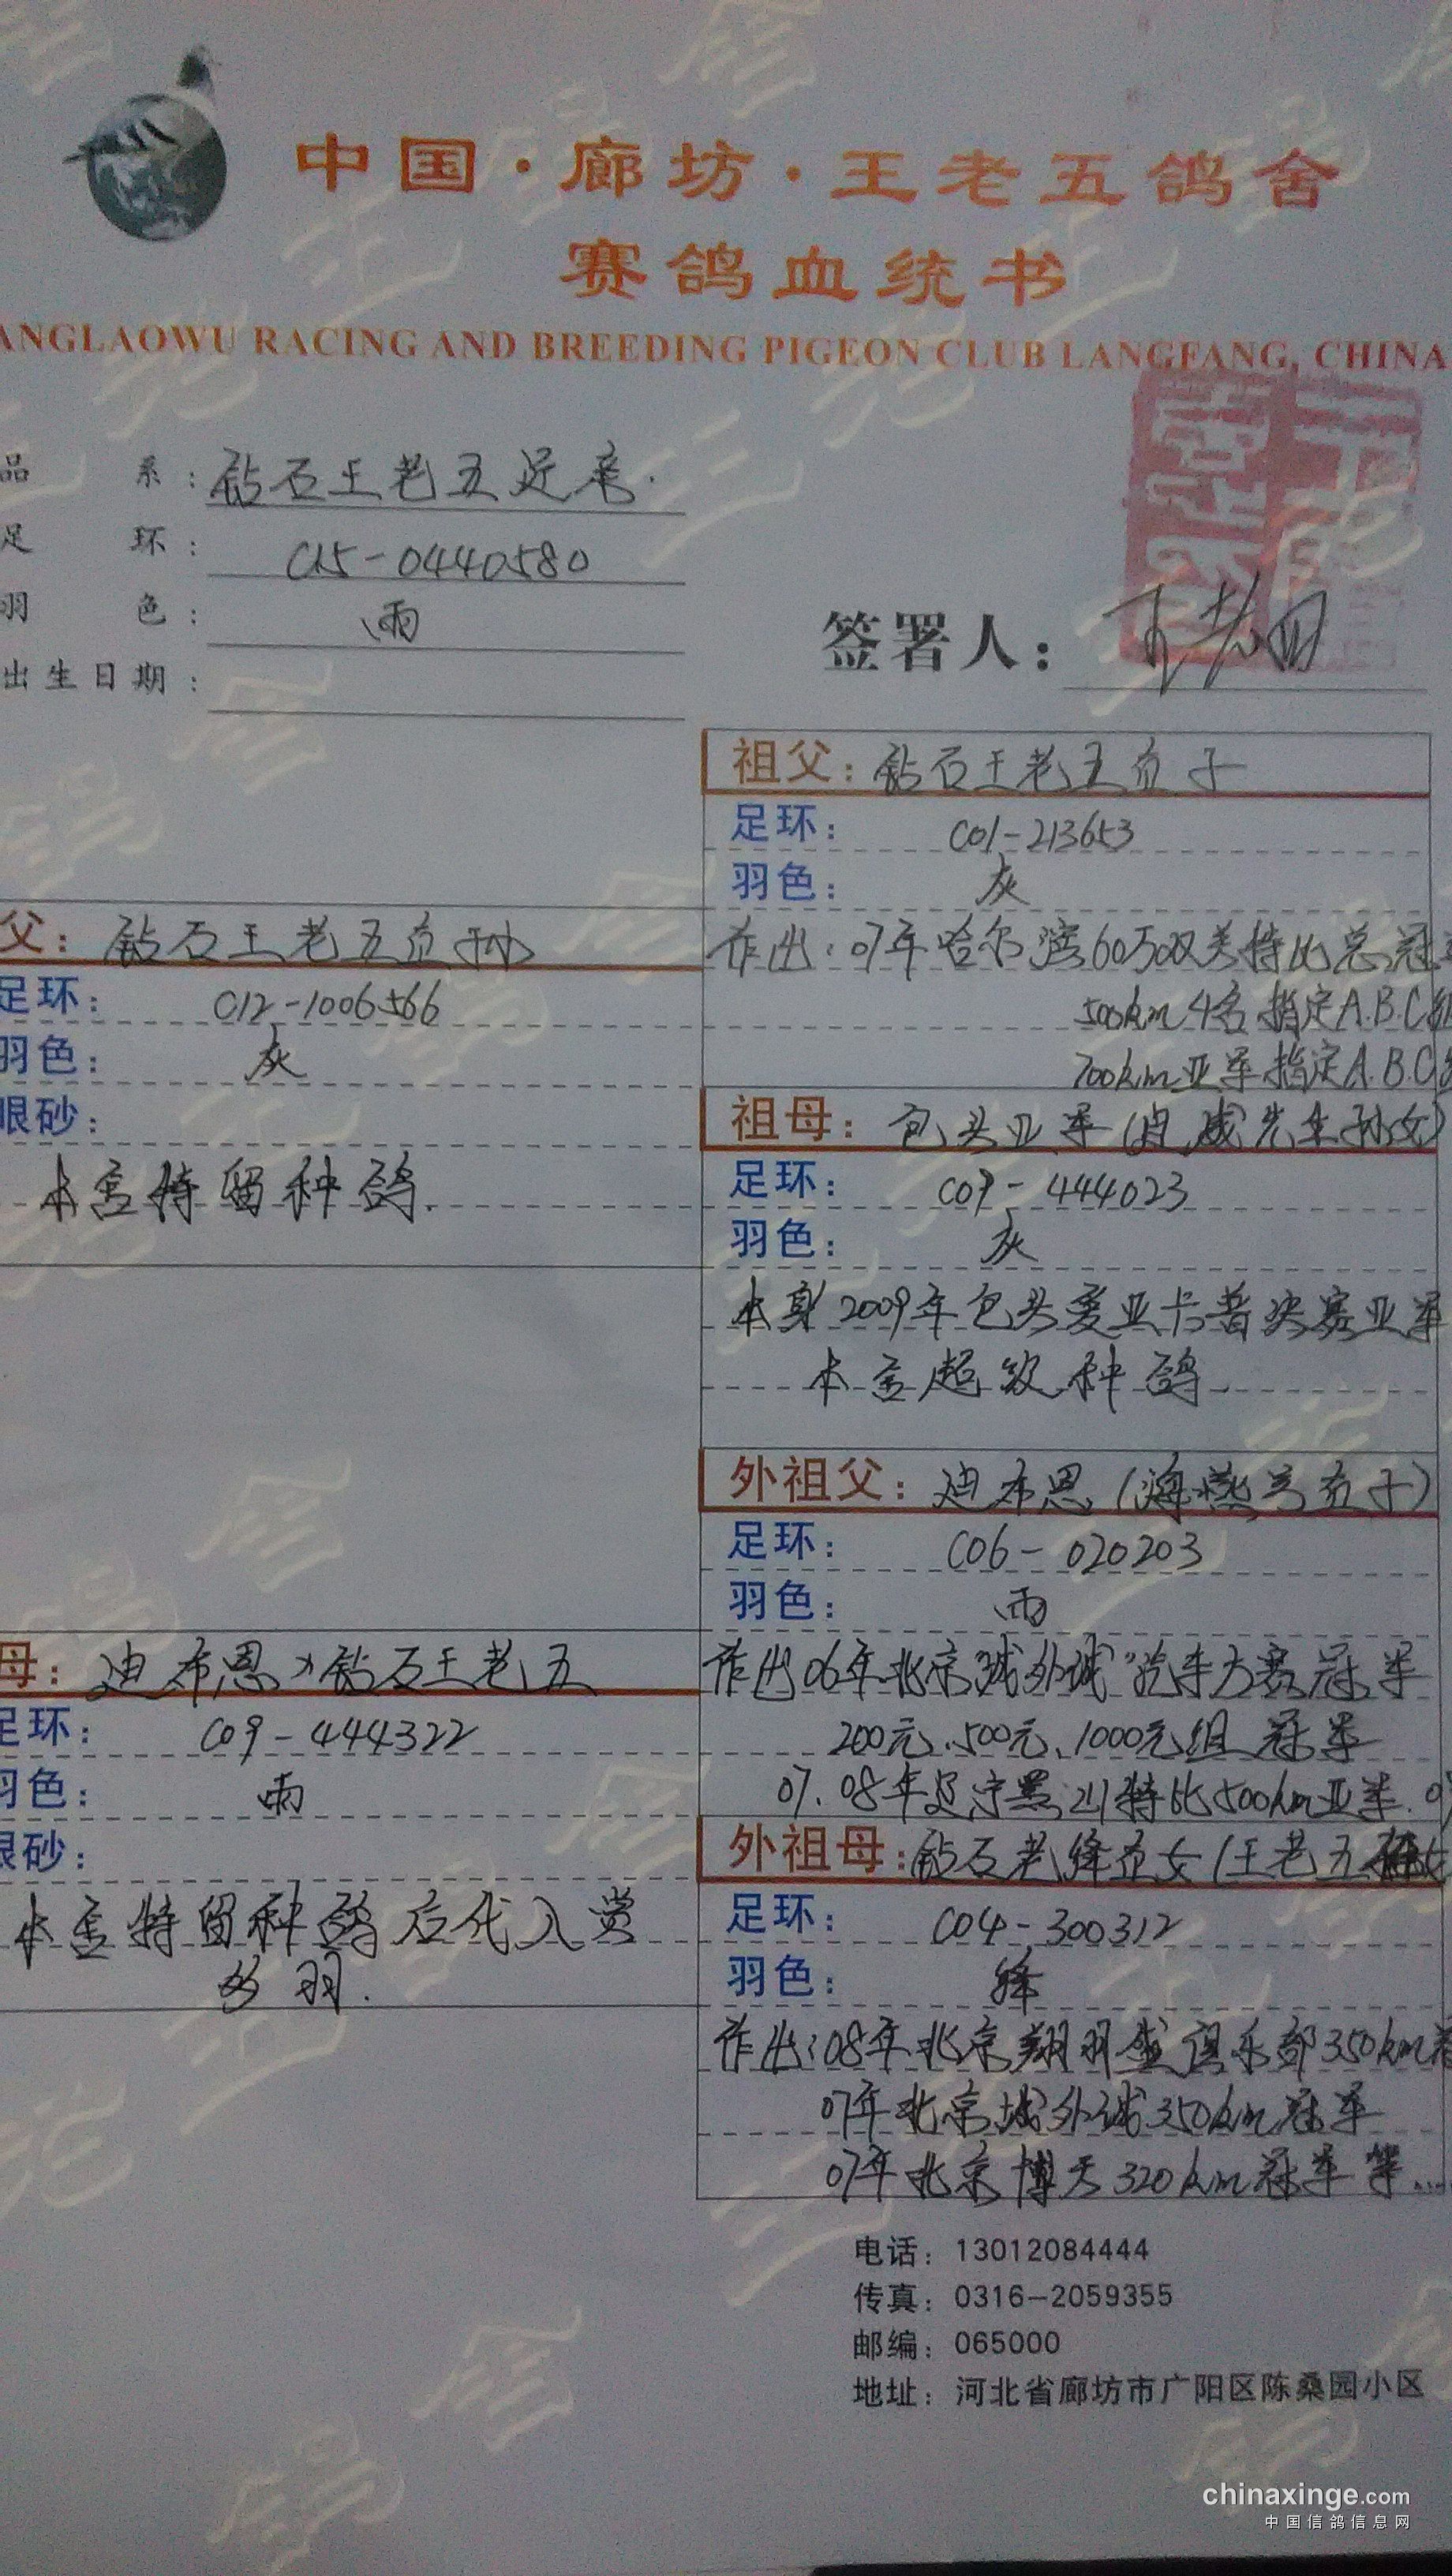 中国·廊坊·王老五鸽舍
赛鸽血统书
ANGLAOWU RACING AND BREEDING PIGEON CLUB LANGFANG, CHINA
品 系：钻石王老五近亲.
足 环：C15-0440580
羽 色：雨
出生日期：
签署人：
祖父：钻石王老五直子
足环：C01-213653
羽色：灰
作出：07年哈尔滨60万双关特比总冠
500km 4名 指定A.B.C
700km亚军指定A.B.C
祖母：包头亚军(肖威先生孙女)
足环：C09-444023
羽色：灰
本身2009年包头爱亚卡普决赛亚军
本舍超级种鸽.
父：钻石王老五直孙
足环：C12-1006566
羽色：灰
眼砂：
本舍特留种鸽.
外祖父：迪布恩(海燕号直子)
足环：C06-020203
羽色：雨
作出06年北京"城外诚"汽车大赛冠军
200元、500元、1000元组冠军
07.08年辽宁黑山特比500km亚军.
外祖母：钻石老绛直女(王老五
足环：C04-300312
羽色：绛
作出：08年北京翔羽盛俱乐部350km
07年北京城外诚350km冠军
07年北京博天320km冠军等...
母：迪布恩×钻石王老五
足环：C09-444322
羽色：雨
眼砂：
本舍特留种鸽后代入赏
多羽.
电话：13012084444
传真：0316-2059355
邮编：065000
地址：河北省廊坊市广阳区陈桑园小区
chinaxinge.com
中国信鸽信息网